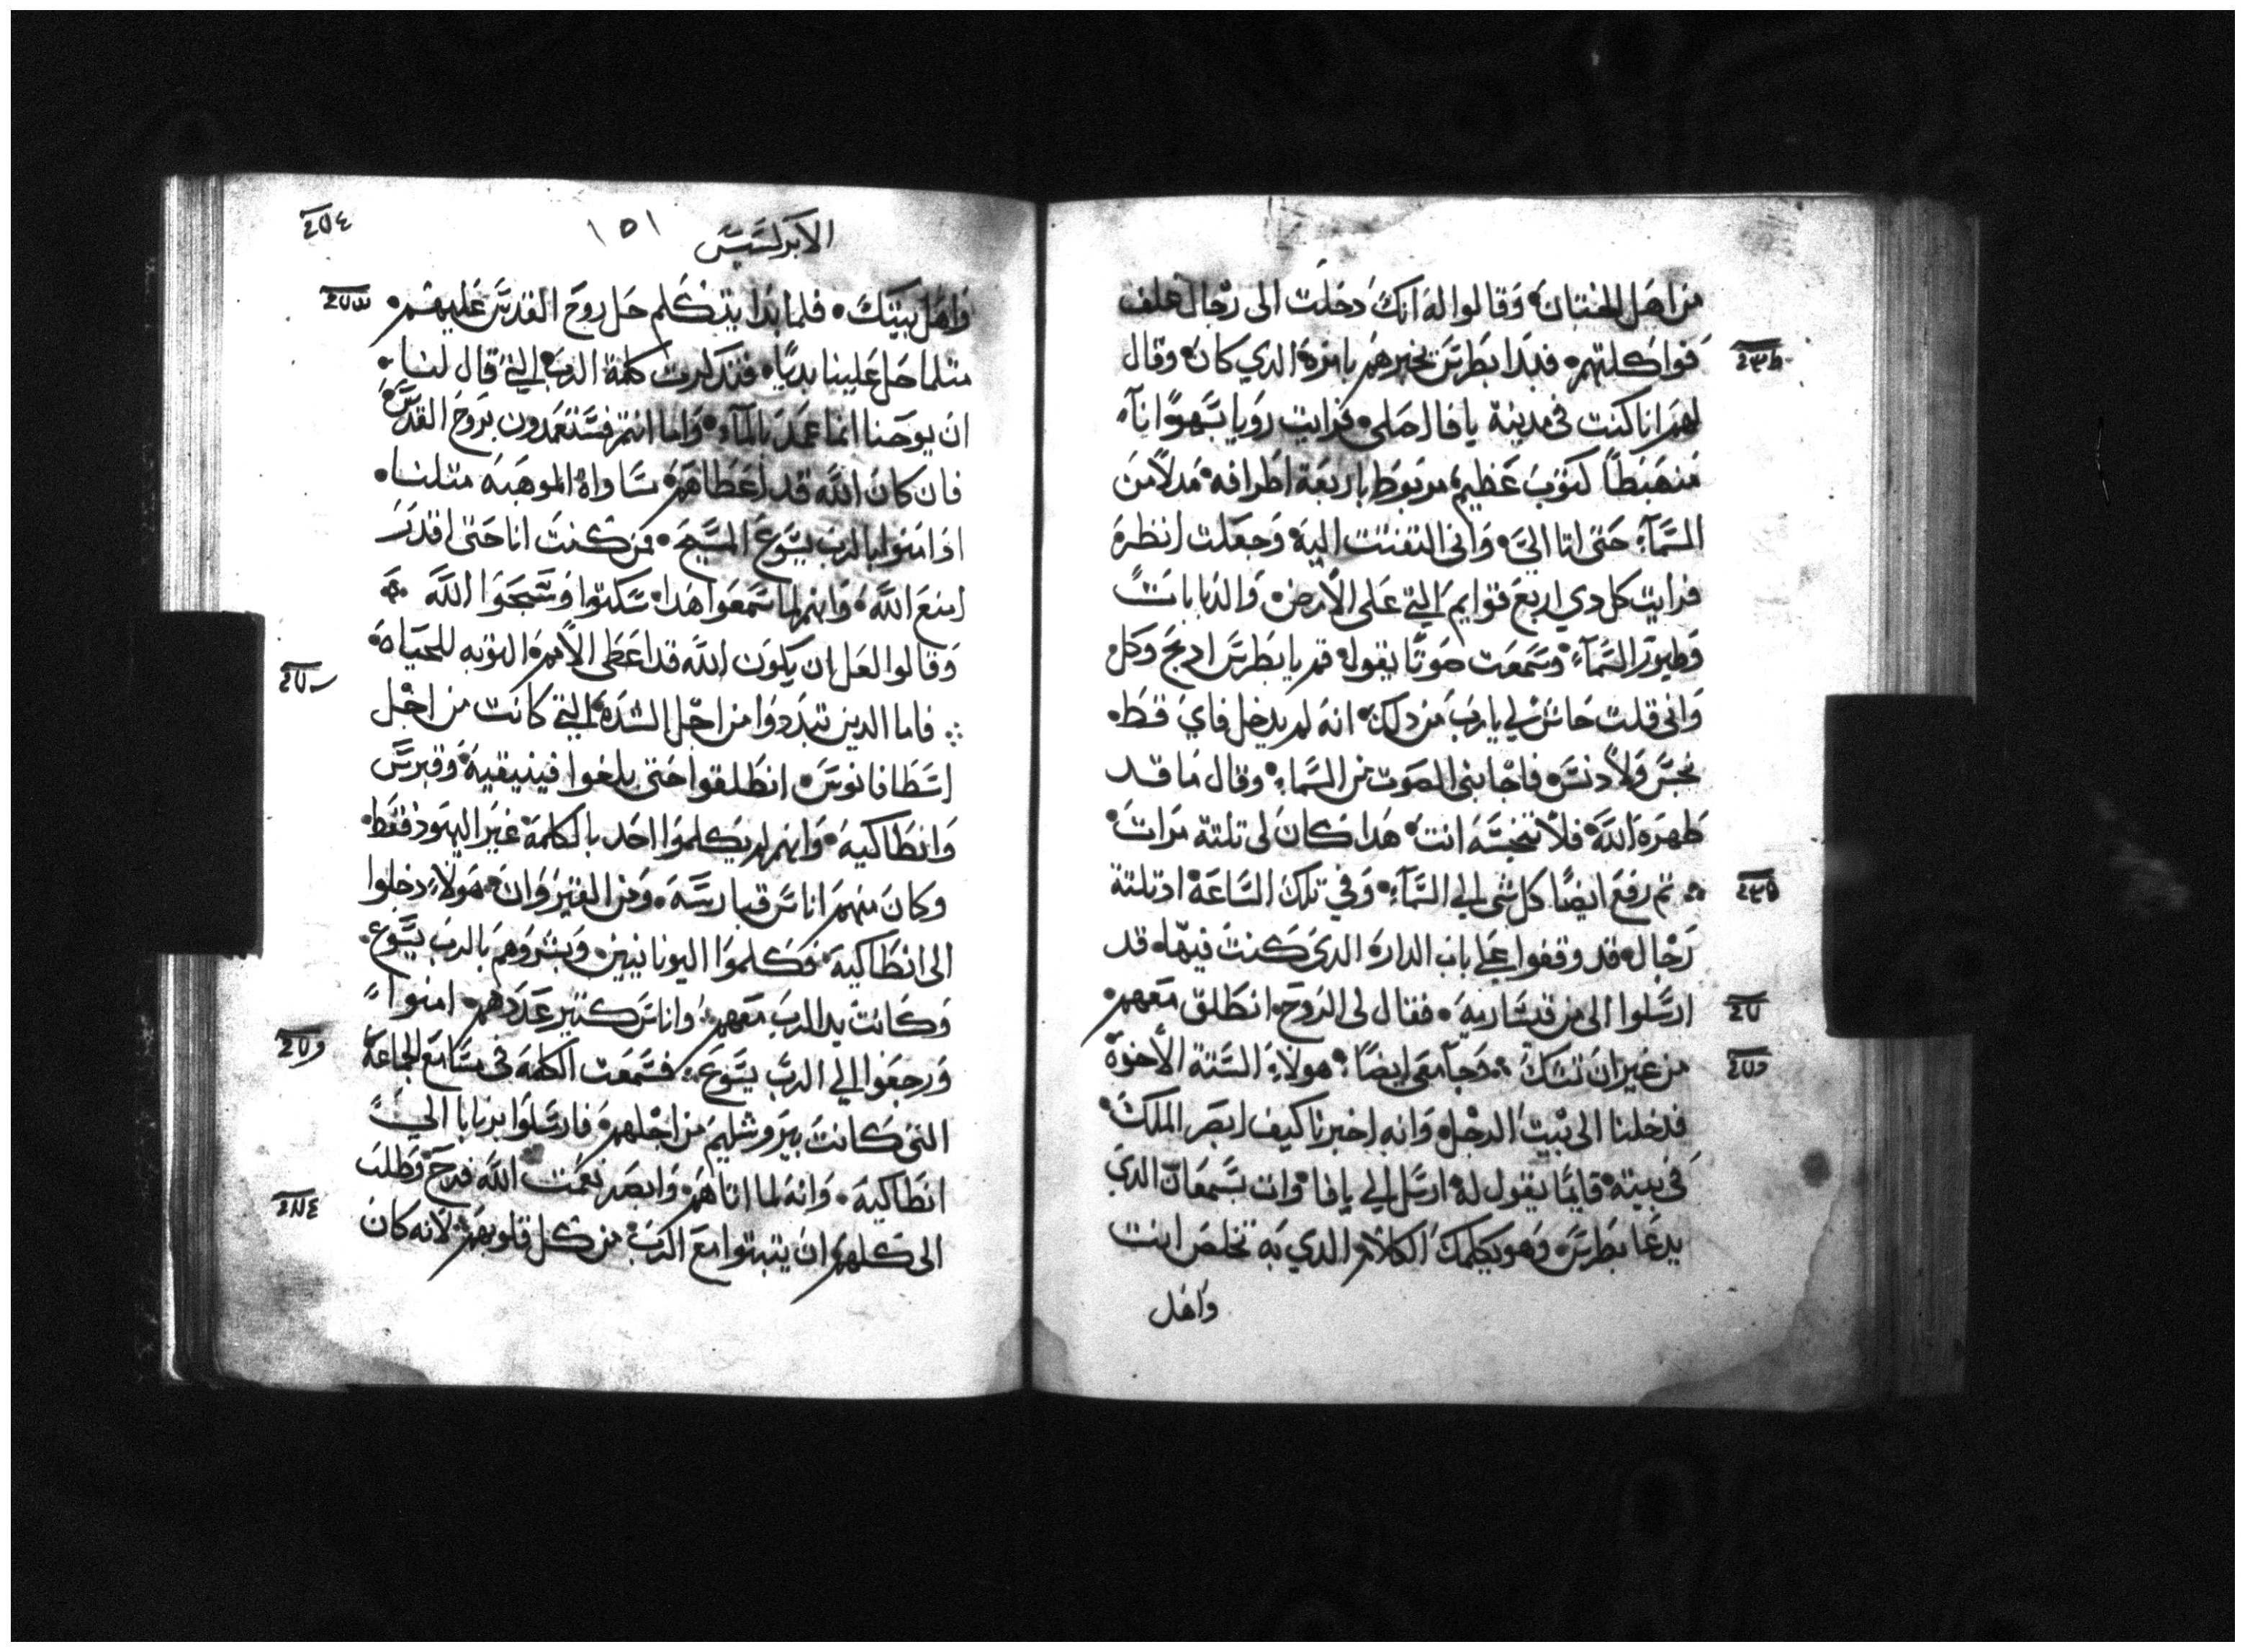 من اهل الختان وقالوا له انك دخلت الى رجال غلف
فواكلتهم فبدا بطرس يخبرهم بامره الدي كان وقال
لهم انا كنت في مدينة يافا اصلى فرايت رويا بسهو انآء
منهبطا كتوب عظيم مربوط باربعة اطرافه مدلا من
السمآء حتى اتا اليَّ وانى التفتت اليه وجعلت انظره
فرايت كل دي اربع قوايم التي على الارض والدبابات
وطيور السمآء وسمعت صوتا يقول قم يا بطرس ادبح وكل
وانى قلت حاش لي يارب من دلك انه لم يدخل فاي قط
نجس ولا دنس فاجابنى الصوت من السماء وقال ما قد
طهره الله فلا تنجسه انت هدا كان لى تلتة مرات
تم رفع ايضا كل شى الي السمآء وفي تلك الساعة ادتلتة
رجال قد وقفوا على باب الدار الدى كنت فيها قد
ارسلوا الى من قيسارية فقال لى الروح انطلق معهم
من غير ان تشك وجآ معى ايضا هولاء الستة الاخوة
فدخلنا الى بيت الرجل وانه اخبرنا كيف ابصر الملاك
فى بيته قايما يقول له ارسل الي يافا وات بسمعان الدي
يدعا بطرس وهو يكلمك الكلام الدي به تخلص انت
واهل
الابركسيس
١٥١
واهل بيتك فلما بدا يتكلم حل روح القدس عليهم
متلما حل علينا بديا فتدكرت كلمة الرب التي قال لنا
ان يوحنا انما عمد بالمآء واما انتم فستعمدون بروح القدس
فان كان الله قد اعطاهم مساواة الموهبه متلنا
اد امنوا بالرب يسوع المسيح فمن كنت انا حتى اقدر
امنع الله وانهم لما سمعوا هدا سكتوا وسبحوا الله
وقالوا لعل ان يكون الله قد اعطى الامم التوبه للحياه
فاما الدين تبددوا من اجل الشده التي كانت من اجل
اسطافانوس انطلقوا حتى بلغوا فينيقية وقبرس
وانطاكية وانهم لم يكلموا احد بالكلمة غير اليهود فقط
وكان منهم اناس قبارسة ومن القيروان هولاء دخلوا
الى انطاكية فكلموا اليونانيين وبشروهم بالرب يسوع
وكانت يد الرب معهم واناس كتير عددهم امنوا
ورجعوا الي الرب يسوع فسمعت الكلمة فى مسامع الجماعة
التى كانت بيروشليم من اجلهم فارسلوا برنابا الي
انطاكية وانه لما اتاهم وابصر نعمت الله فرح وطلب
الى كلهم ان يتبتوا مع الرب من كل قلوبهم لانه كان